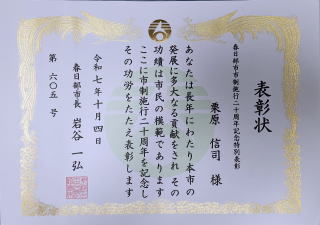 表彰状
春日部市市制施行二十周年記念特別表彰
栗原 信司 様
あなたは長年にわたり本市の
発展に多大なる貢献をされ その
功績は市民の模範であります
ここに市制施行二十周年を記念し
その功労をたたえ表彰します
令和七年十月四日
春日部市長 岩谷 一弘
第 六〇五 号